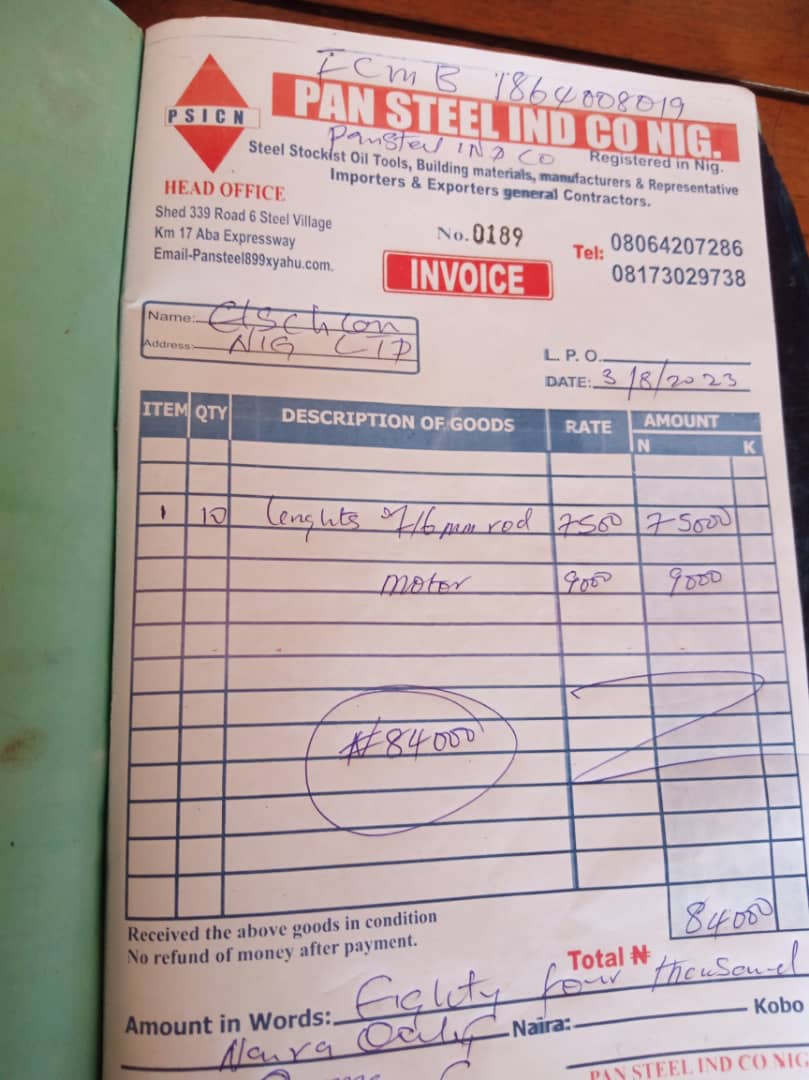 FCMB 1864008019
PSICN
PAN STEEL IND CO NIG.
Pansteel IND CO
Registered in Nig.
Steel Stockist Oil Tools, Building materials, manufacturers & Representative
Importers & Exporters general Contractors.
HEAD OFFICE
Shed 339 Road 6 Steel Village
Km 17 Aba Expressway
Email-Pansteel899xyahu.com.
No. 0189
INVOICE
Tel: 08064207286
08173029738
Name:
Address: NIG LTD
L. P. O.
DATE: 3/8/2023
ITEM QTY DESCRIPTION OF GOODS RATE AMOUNT
N K
1 10 lenghts of 16mm rod 7500 75000
motor 9000 9000
₦84000
84000
Received the above goods in condition
No refund of money after payment.
Total ₦
Amount in Words: Eighty four thousand
Naira Only Naira: Kobo
PAN STEEL IND CO NIG